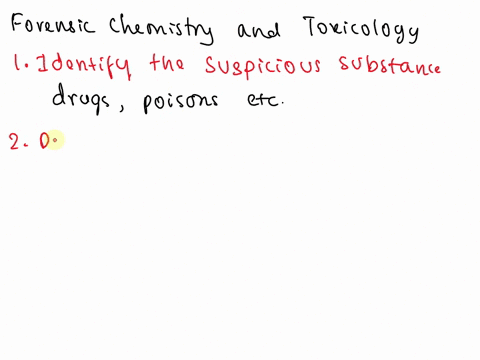 Forensic Chemistry and Toxicology
1. Identify the suspicious substance
drugs, poisons etc.
2. D